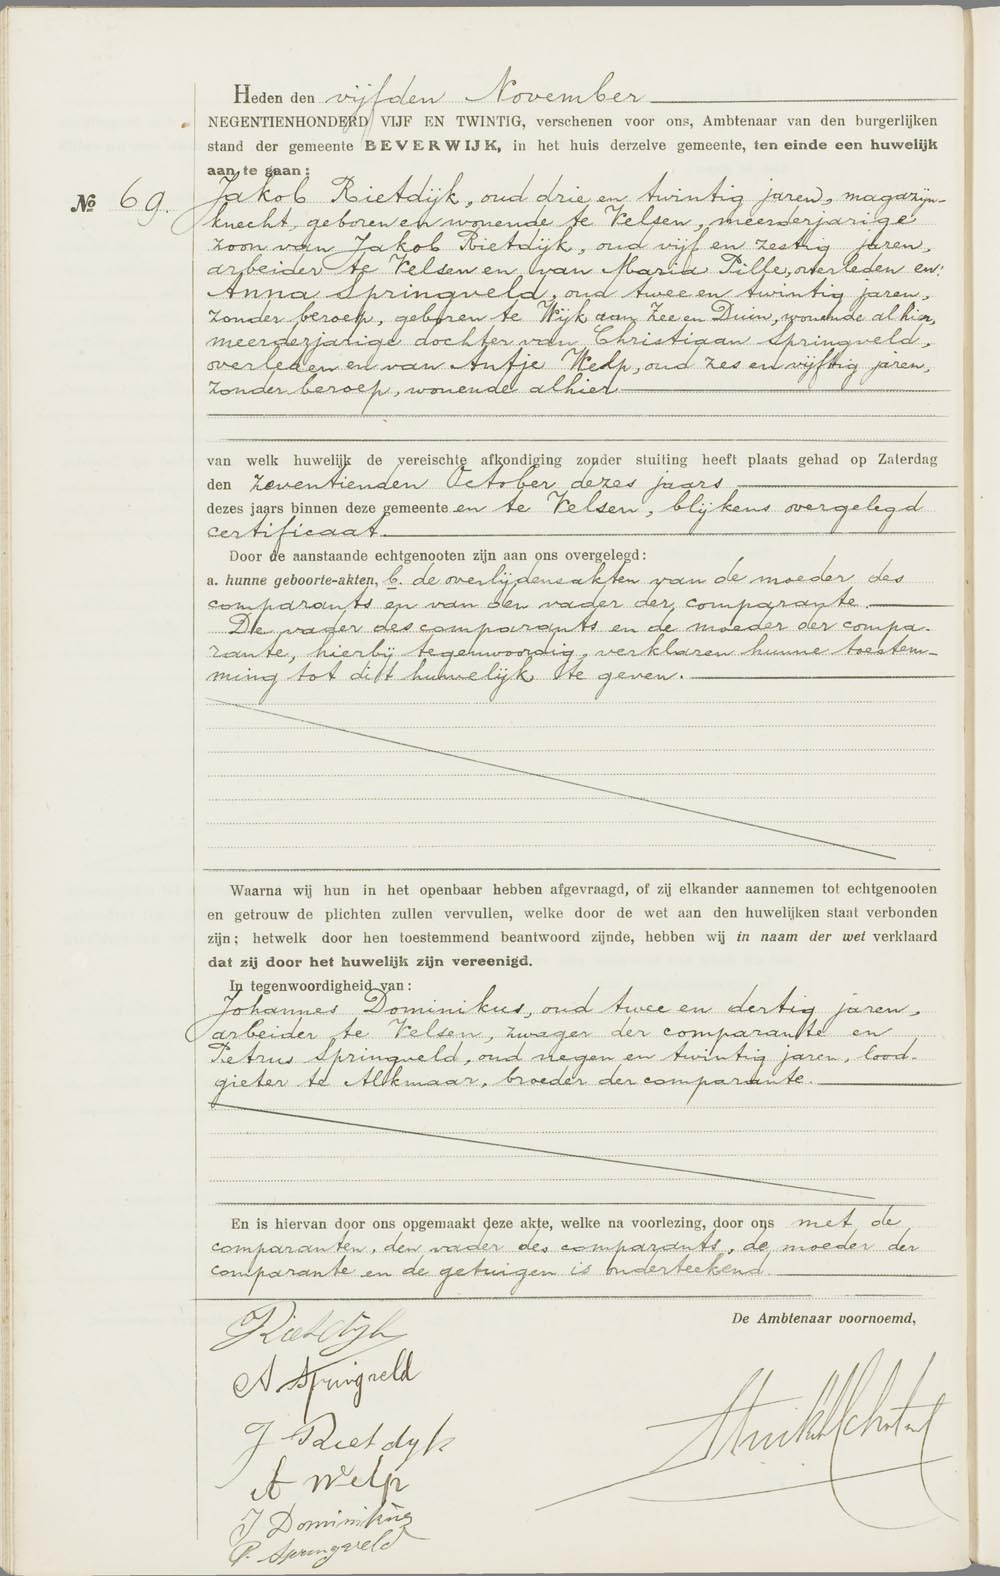 Heden den vijfden November
NEGENTIENHONDERD VIJF EN TWINTIG, verschenen voor ons, Ambtenaar van den burgerlijken
stand der gemeente BEVERWIJK, in het huis derzelve gemeente, ten einde een huwelijk
aan te gaan:
№ 69.
Jakob Rietdijk, oud drie en twintig jaren, magazijn-
knecht, geboren en wonende te Velsen, meerderjarige
zoon van Jakob Rietdijk, oud vijf en zestig jaren,
arbeider te Velsen en van Maria Pille, overleden en:
Anna Springveld, oud twee en twintig jaren,
zonder beroep, geboren te Wijk aan Zee en Duin, wonende alhier,
meerderjarige dochter van Christiaan Springveld,
overleden en van Antje Welp, oud zes en vijftig jaren,
zonder beroep, wonende alhier
van welk huwelijk de vereischte afkondiging zonder stuiting heeft plaats gehad op Zaterdag
den zeventienden October dezes jaars
dezes jaars binnen deze gemeente en te Velsen, blijkens overgelegd
certificaat.
Door de aanstaande echtgenooten zijn aan ons overgelegd:
a. hunne geboorte-akten, b. de overlijdensakten van de moeder des
comparants en van den vader der comparante.
De vader des comparants en de moeder der compa-
rante, hierbij tegenwoordig, verklaren hunne toestem-
ming tot dit huwelijk te geven.
Waarna wij hun in het openbaar hebben afgevraagd, of zij elkander aannemen tot echtgenooten
en getrouw de plichten zullen vervullen, welke door de wet aan den huwelijken staat verbonden
zijn; hetwelk door hen toestemmend beantwoord zijnde, hebben wij in naam der wet verklaard
dat zij door het huwelijk zijn vereenigd.
In tegenwoordigheid van:
Johannes Dominikus, oud twee en dertig jaren,
arbeider te Velsen, zwager der comparante en
Petrus Springveld, oud negen en twintig jaren, lood-
gieter te Alkmaar, broeder der comparante.
En is hiervan door ons opgemaakt deze akte, welke na voorlezing, door ons met de
comparanten, den vader des comparants, de moeder der
comparante en de getuigen is onderteekend.
De Ambtenaar voornoemd,
Rietdijk
A Springveld
J Rietdijk
A Welp
J Dominikus
P. Springveld